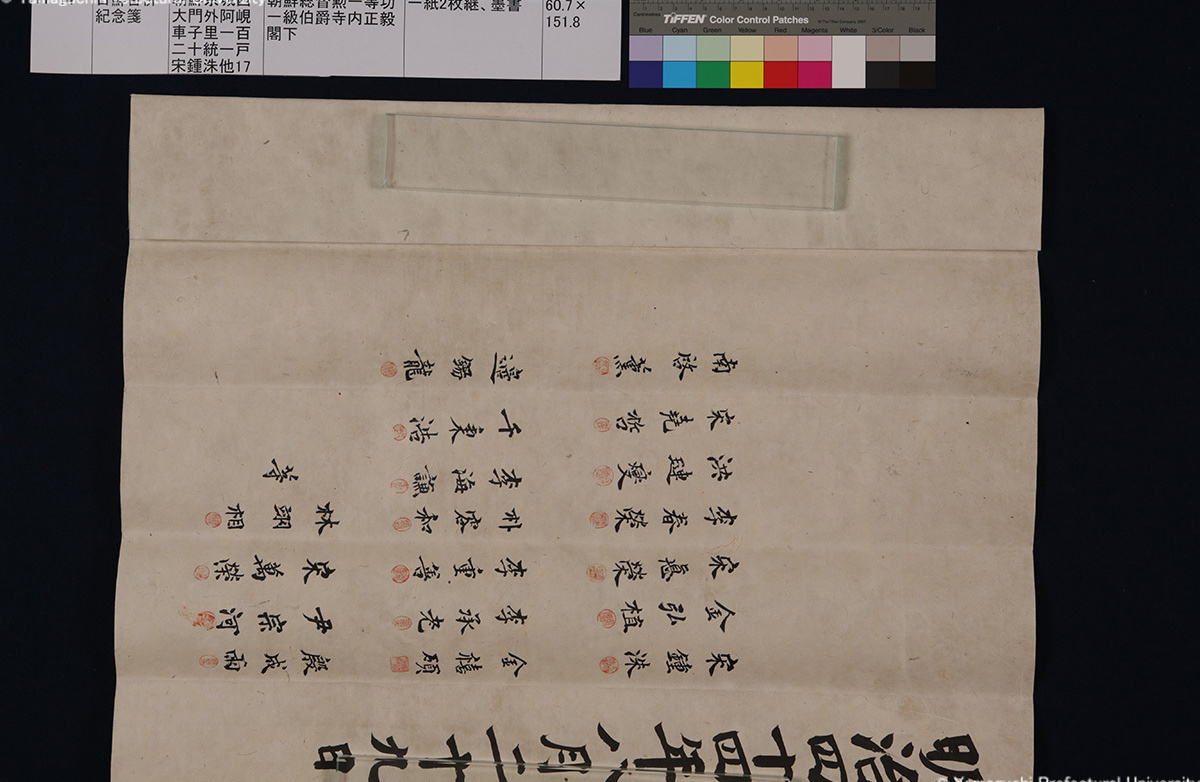 朝鮮総督勲一等功
一級伯爵寺内正毅
閣下
紀念箋
大門外阿峴
車子里一百
二十統一戸
宋鍾洙他17
一紙2枚継、墨書
60.7×
151.8
Centimetres
TIFFEN Color Control Patches
Blue Cyan Green Yellow Red Magenta White 3/Color Black
明治四十四年八月二十九日
宋鍾洙
金弘植
宋憙榮
李春榮
洪鍵燮
宋堯哲
南啓薰
金禧顯
李承老
李重善
朴容和
李海謙
千東浩
邊錫龍
殷成雨
尹宗河
宋萬榮
林翊相
等
© Yamaguchi Prefectural University